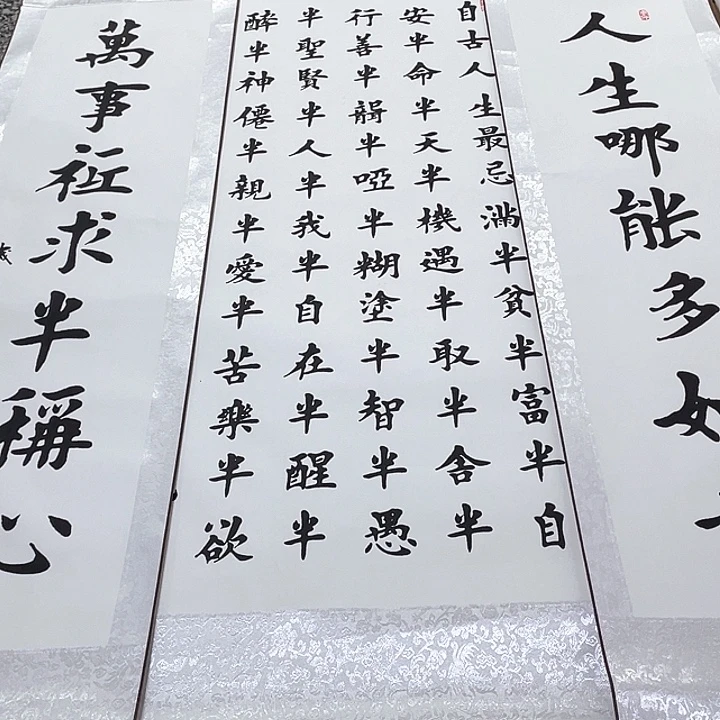 人生哪能多如
自古人生最忌滿半貧半富半自
安半命半天半機遇半取半舍半
行善半聾半啞半糊塗半智半愚
半聖賢半人半我半自在半醒半
醉半神僊半親半愛半苦樂半欲
萬事祇求半稱心